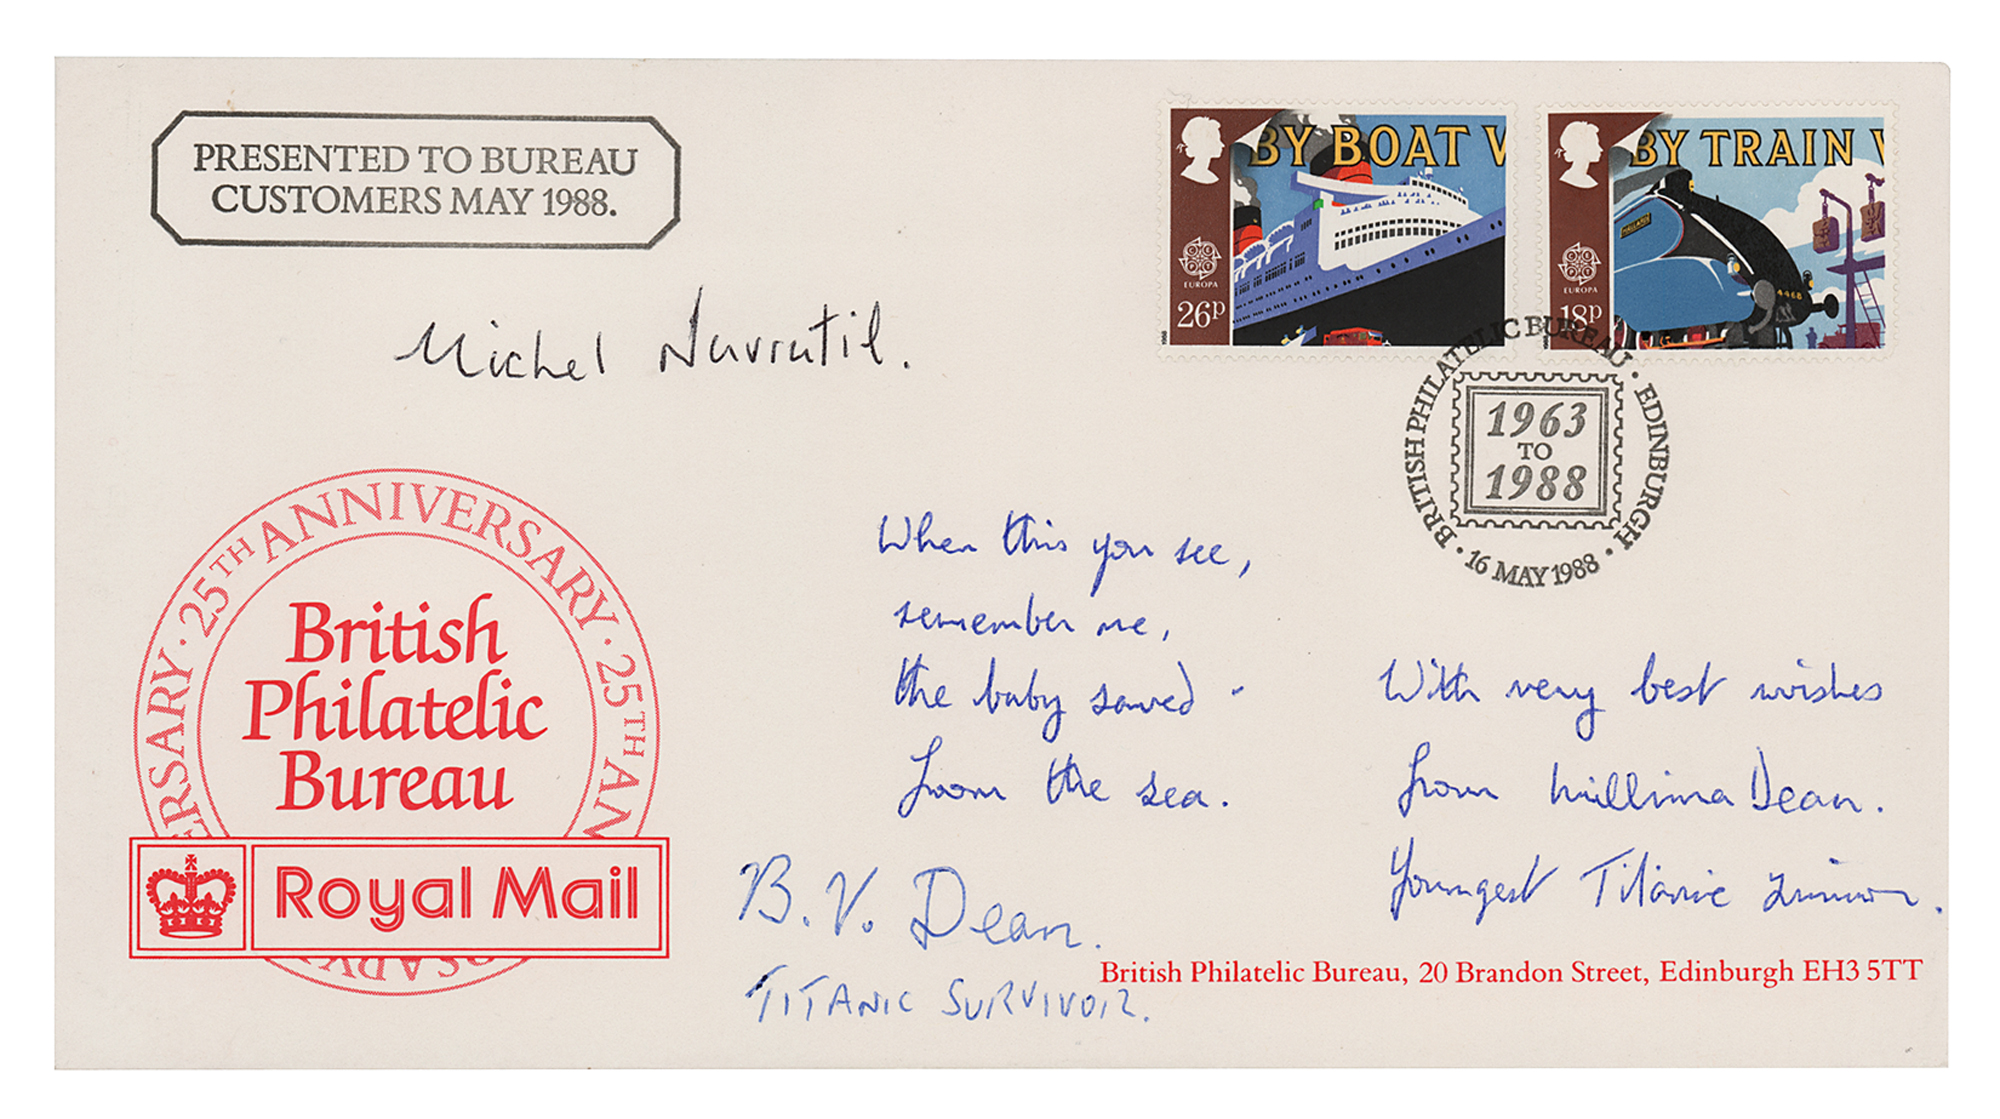 PRESENTED TO BUREAU
CUSTOMERS MAY 1988.
BY BOAT V
EUROPA
26p
BY TRAIN V
MALLARD
4468
EUROPA
18p
BRITISH PHILATELIC BUREAU · EDINBURGH · 16 MAY 1988 ·
1963
TO
1988
Michel Navratil.
25TH ANNIVERSARY · 25TH AN
ERSARY ·
British
Philatelic
Bureau
Royal Mail
When this you see,
remember me,
the baby saved -
from the sea.
B. V. Dean.
TITANIC SURVIVOR.
With very best wishes
from Millvina Dean.
Youngest Titanic survivor.
British Philatelic Bureau, 20 Brandon Street, Edinburgh EH3 5TT